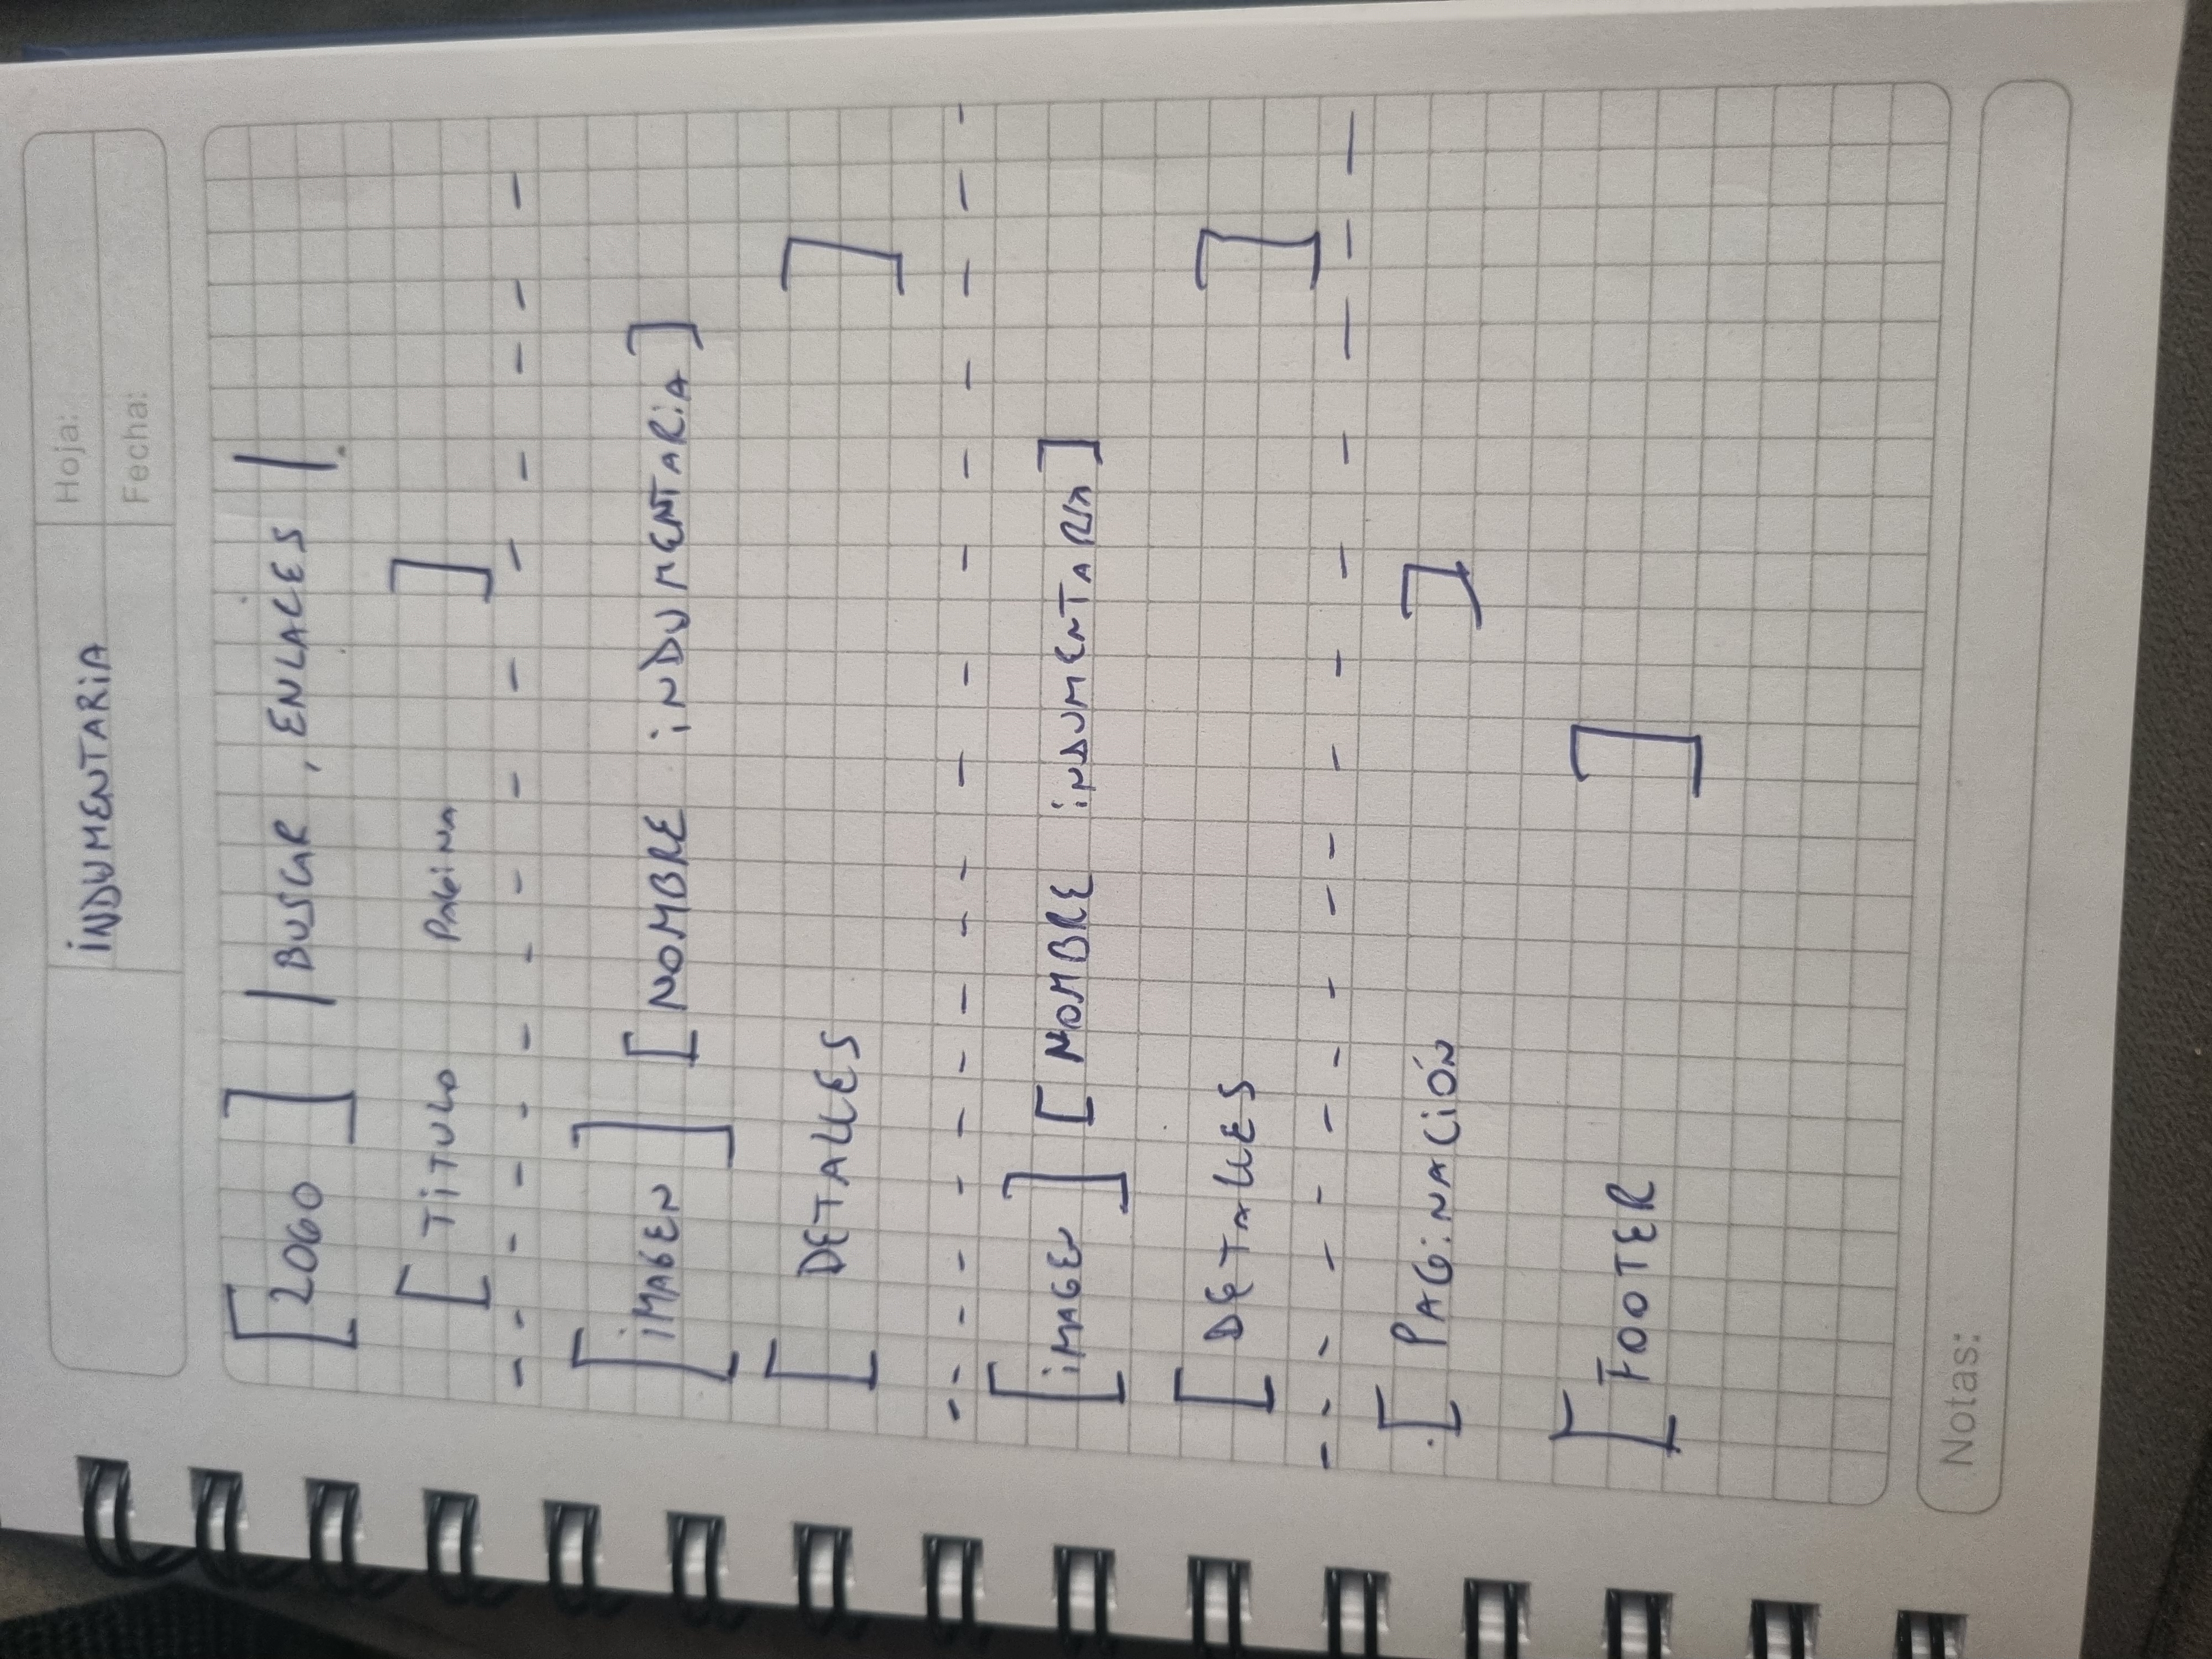 INDUMENTARIA
Hoja:
Fecha:
[LOGO] | BUSCAR, ENLACES |
[TITULO PAGINA]
- - - - - - - - - - - - - - -
[IMAGEN] [NOMBRE INDUMENTARIA]
[DETALLES]
- - - - - - - - - - - - - - - - - -
[IMAGEN] [NOMBRE INDUMENTARIA]
[DETALLES]
- - - - - - - - - - - - - - - - -
[PAGINACIÓN]
[FOOTER]
Notas: